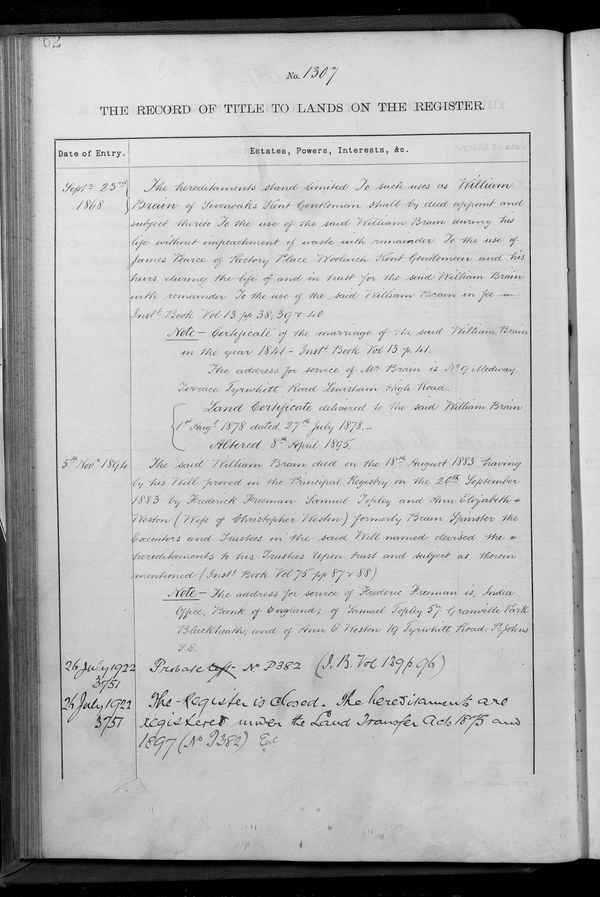 62
No. 1307
THE RECORD OF TITLE TO LANDS ON THE REGISTER.
Date of Entry.
Estates, Powers, Interests, &c.
Septr 23rd 1868
The hereditaments stand limited To such uses as William
Brain of Sevenoaks Kent Gentleman shall by deed appoint and
subject thereto To the use of the said William Brain during his
life without impeachment of waste with remainder To the use of
James Pearce of Rectory Place Woolwich Kent Gentleman and his
heirs during the life of and in trust for the said William Brain
with remainder To the use of the said William Brain in fee —
Instt Book Vol 13 pp 38, 39 & 40
Note — Certificate of the marriage of the said William Brain
in the year 1841 — Instt Book Vol 13 p. 41.
The address for service of Mr Brain is No 9 Medway
Terrace Tyrwhitt Road Lewisham High Road.
Land Certificate delivered to the said William Brain
1st Augt 1878 dated 27th July 1878. —
Altered 8th April 1895.
5th Novr 1894
The said William Brain died on the 18th August 1883 having
by his Will proved in the Principal Registry on the 20th September
1883 by Frederick Freeman Samuel Topley and Ann Elizabeth
Weston (Wife of Christopher Weston) formerly Brain Spinster the
Executors and Trustees in the said Will named devised the
hereditaments to his Trustees Upon trust and subject as therein
mentioned (Instt Book Vol 75 pp 87 & 88)
Note — The address for service of Frederic Freeman is, India
Office, Bank of England; of Samuel Topley 57 Granville Park
Blackheath; and of Ann E Weston 19 Tyrwhitt Road, St. Johns
S.E.
26 July 1922
3751
Probate No P382 (I. B. Vol 139 p. 96)
26 July 1922
3751
The Register is closed. The hereditaments are
registered under the Land Transfer Acts 1875 and
1897 (No P382)